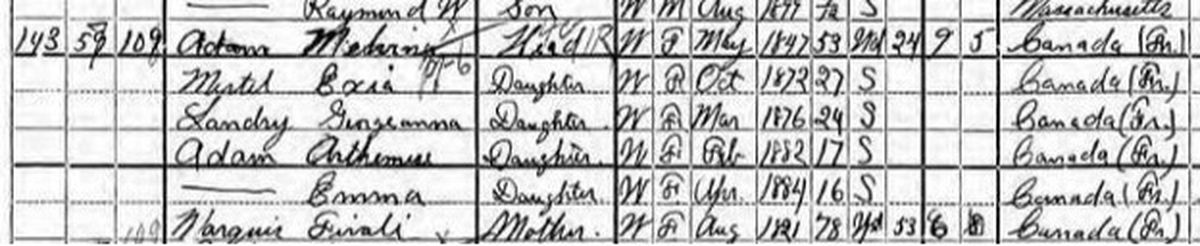 Raymond W Son W M Aug 1899 S Massachusetts
143 59 109 Adam Melvina Head W F May 1847 53 Wd 24 9 5 Canada (Fr.)
Exia Daughter W F Oct 1872 27 S Canada (Fr.)
Landry Georgeanna Daughter W F Mar 1876 24 S Canada (Fr.)
Adam Arthemise Daughter. W F Feb 1882 17 S Canada (Fr.)
—— Emma Daughter. W F Apr. 1884 16 S Canada (Fr.)
109 Marquis Mother. W F Aug 1821 78 Wd 53 Canada (Fr.)